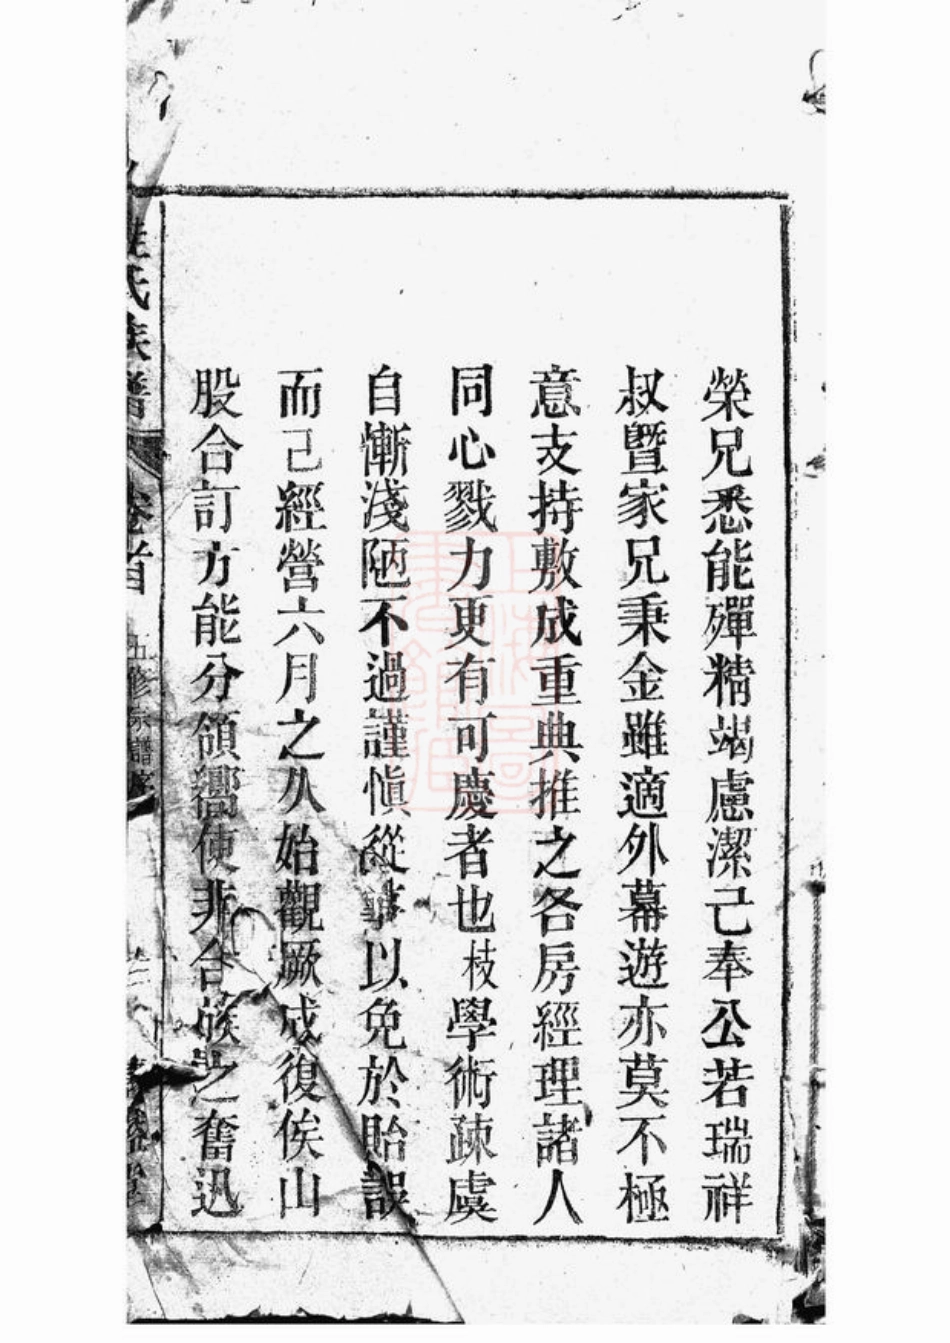 榮兄悉能殫精竭慮潔己奉公若瑞祥
叔曁家兄秉金雖適外幕遊亦莫不極
意支持敷成重典推之各房經理諸人
同心戮力更有可慶者也枝學術疎虞
自慚淺陋不過謹愼從事以免於貽誤
而己經營六月之久始觀厥成復俟山
股合訂方能分領嚮使非合族之奮迅
氏族譜
卷首
五修宗譜序